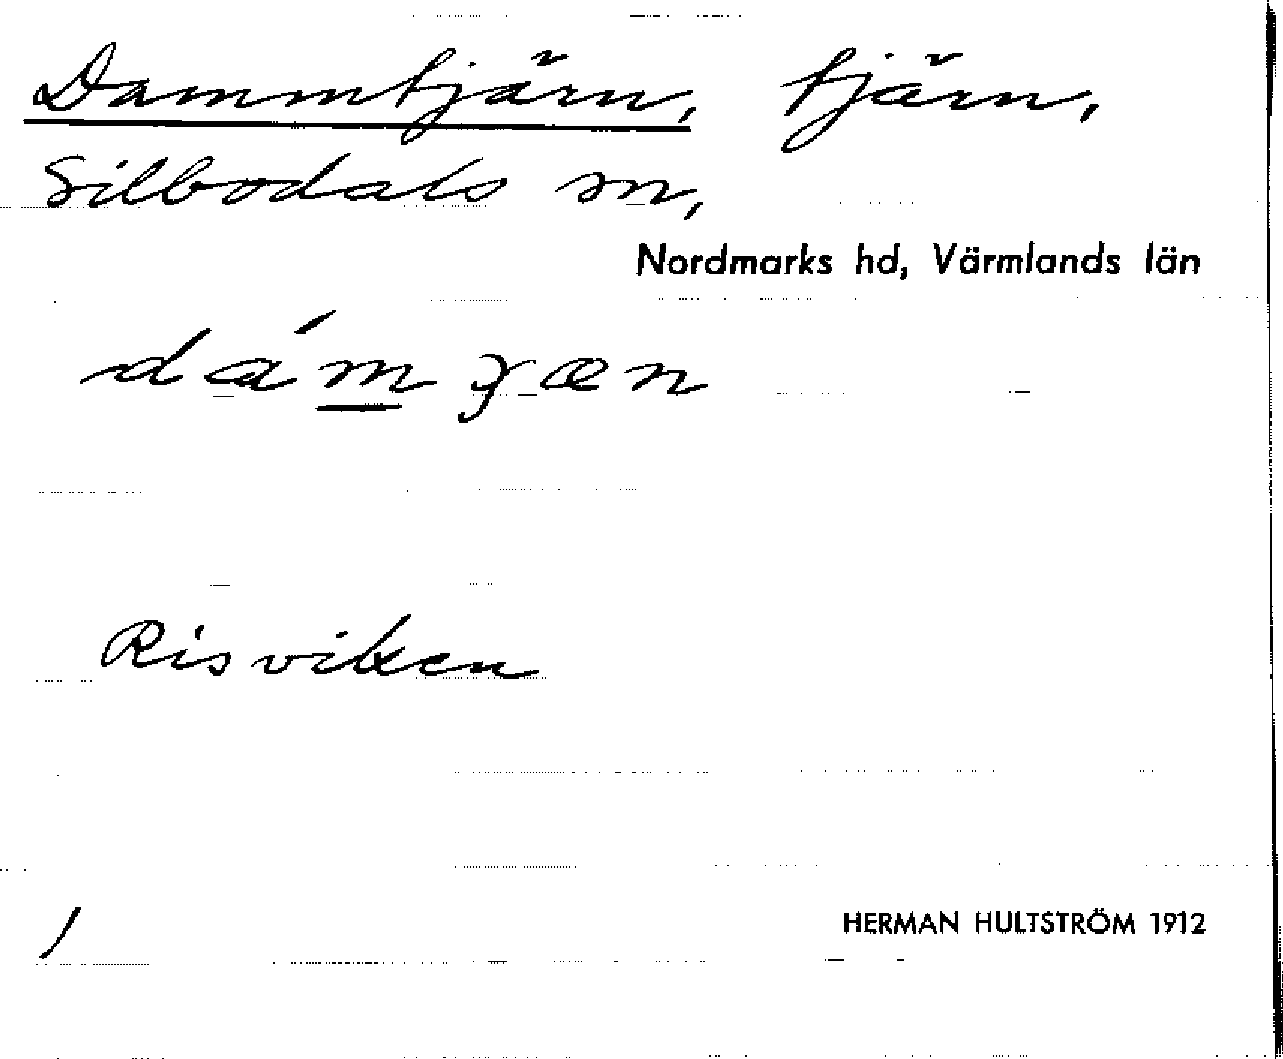 Dammtjärn, tjärn,
Silbodals sn,
Nordmarks hd, Värmlands län
Risviken
/
HERMAN HULTSTRÖM 1912